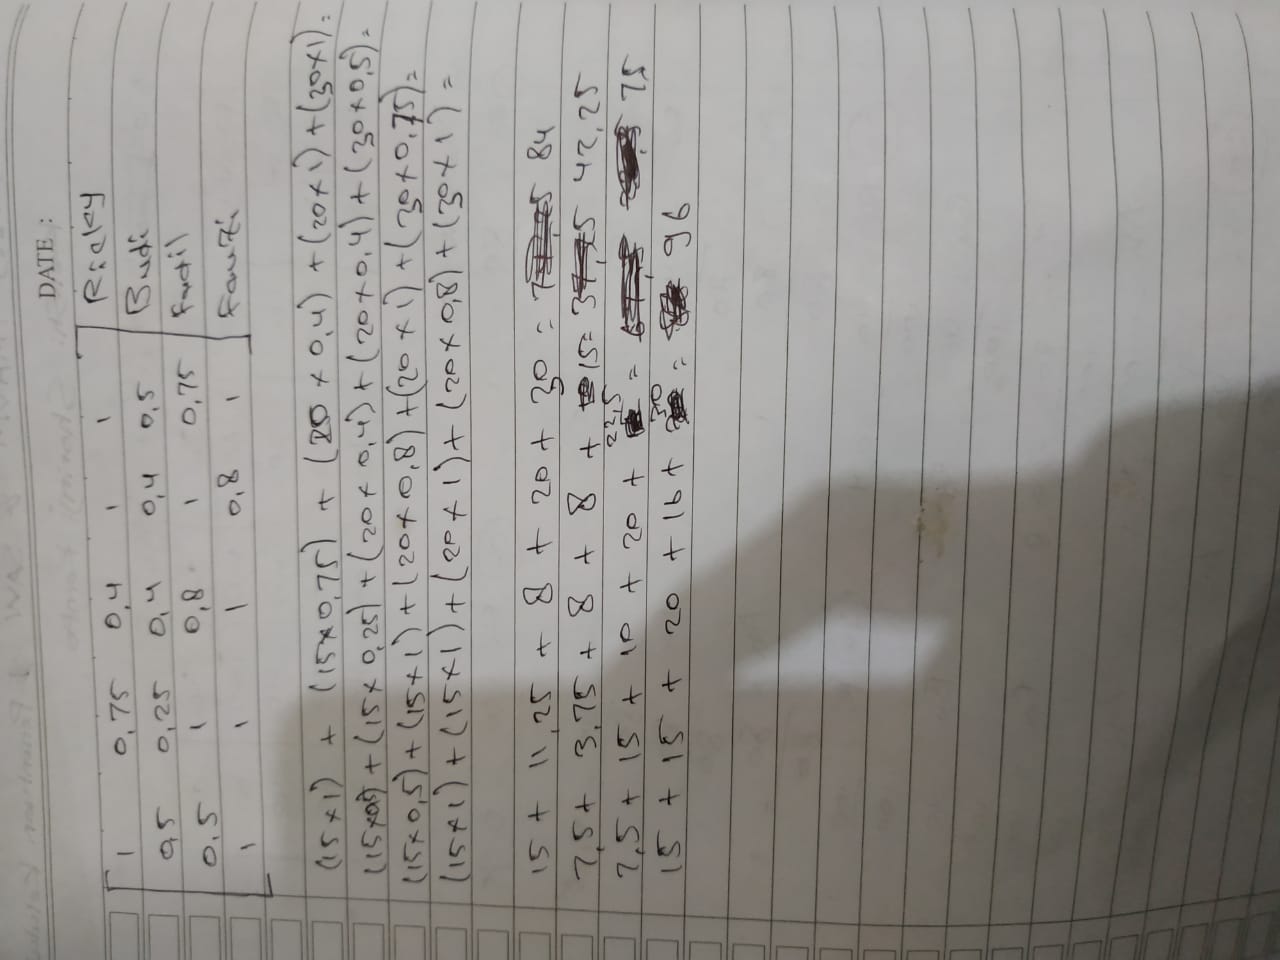 DATE :
1 0,75 0,4 1 1 Ricky
0,5 0,25 0,4 0,4 0,5 Budi
0,5 1 0,8 1 0,75 Fadil
1 1 1 0,8 1 Fauzi
(15×1) + (15×0,75) + (20×0,4) + (20×1) + (30×1) =
(15×0,5) + (15×0,25) + (20×0,4) + (20×0,4) + (30×0,5) =
(15×0,5) + (15×1) + (20×0,8) + (20×1) + (30×0,75) =
(15×1) + (15×1) + (20×1) + (20×0,8) + (30×1) =
15 + 11,25 + 8 + 20 + 30 = 84
7,5 + 3,75 + 8 + 8 + 15 = 42,25
7,5 + 15 + 10 + 20 + 22,5 = 75
15 + 15 + 20 + 16 + 30 = 96